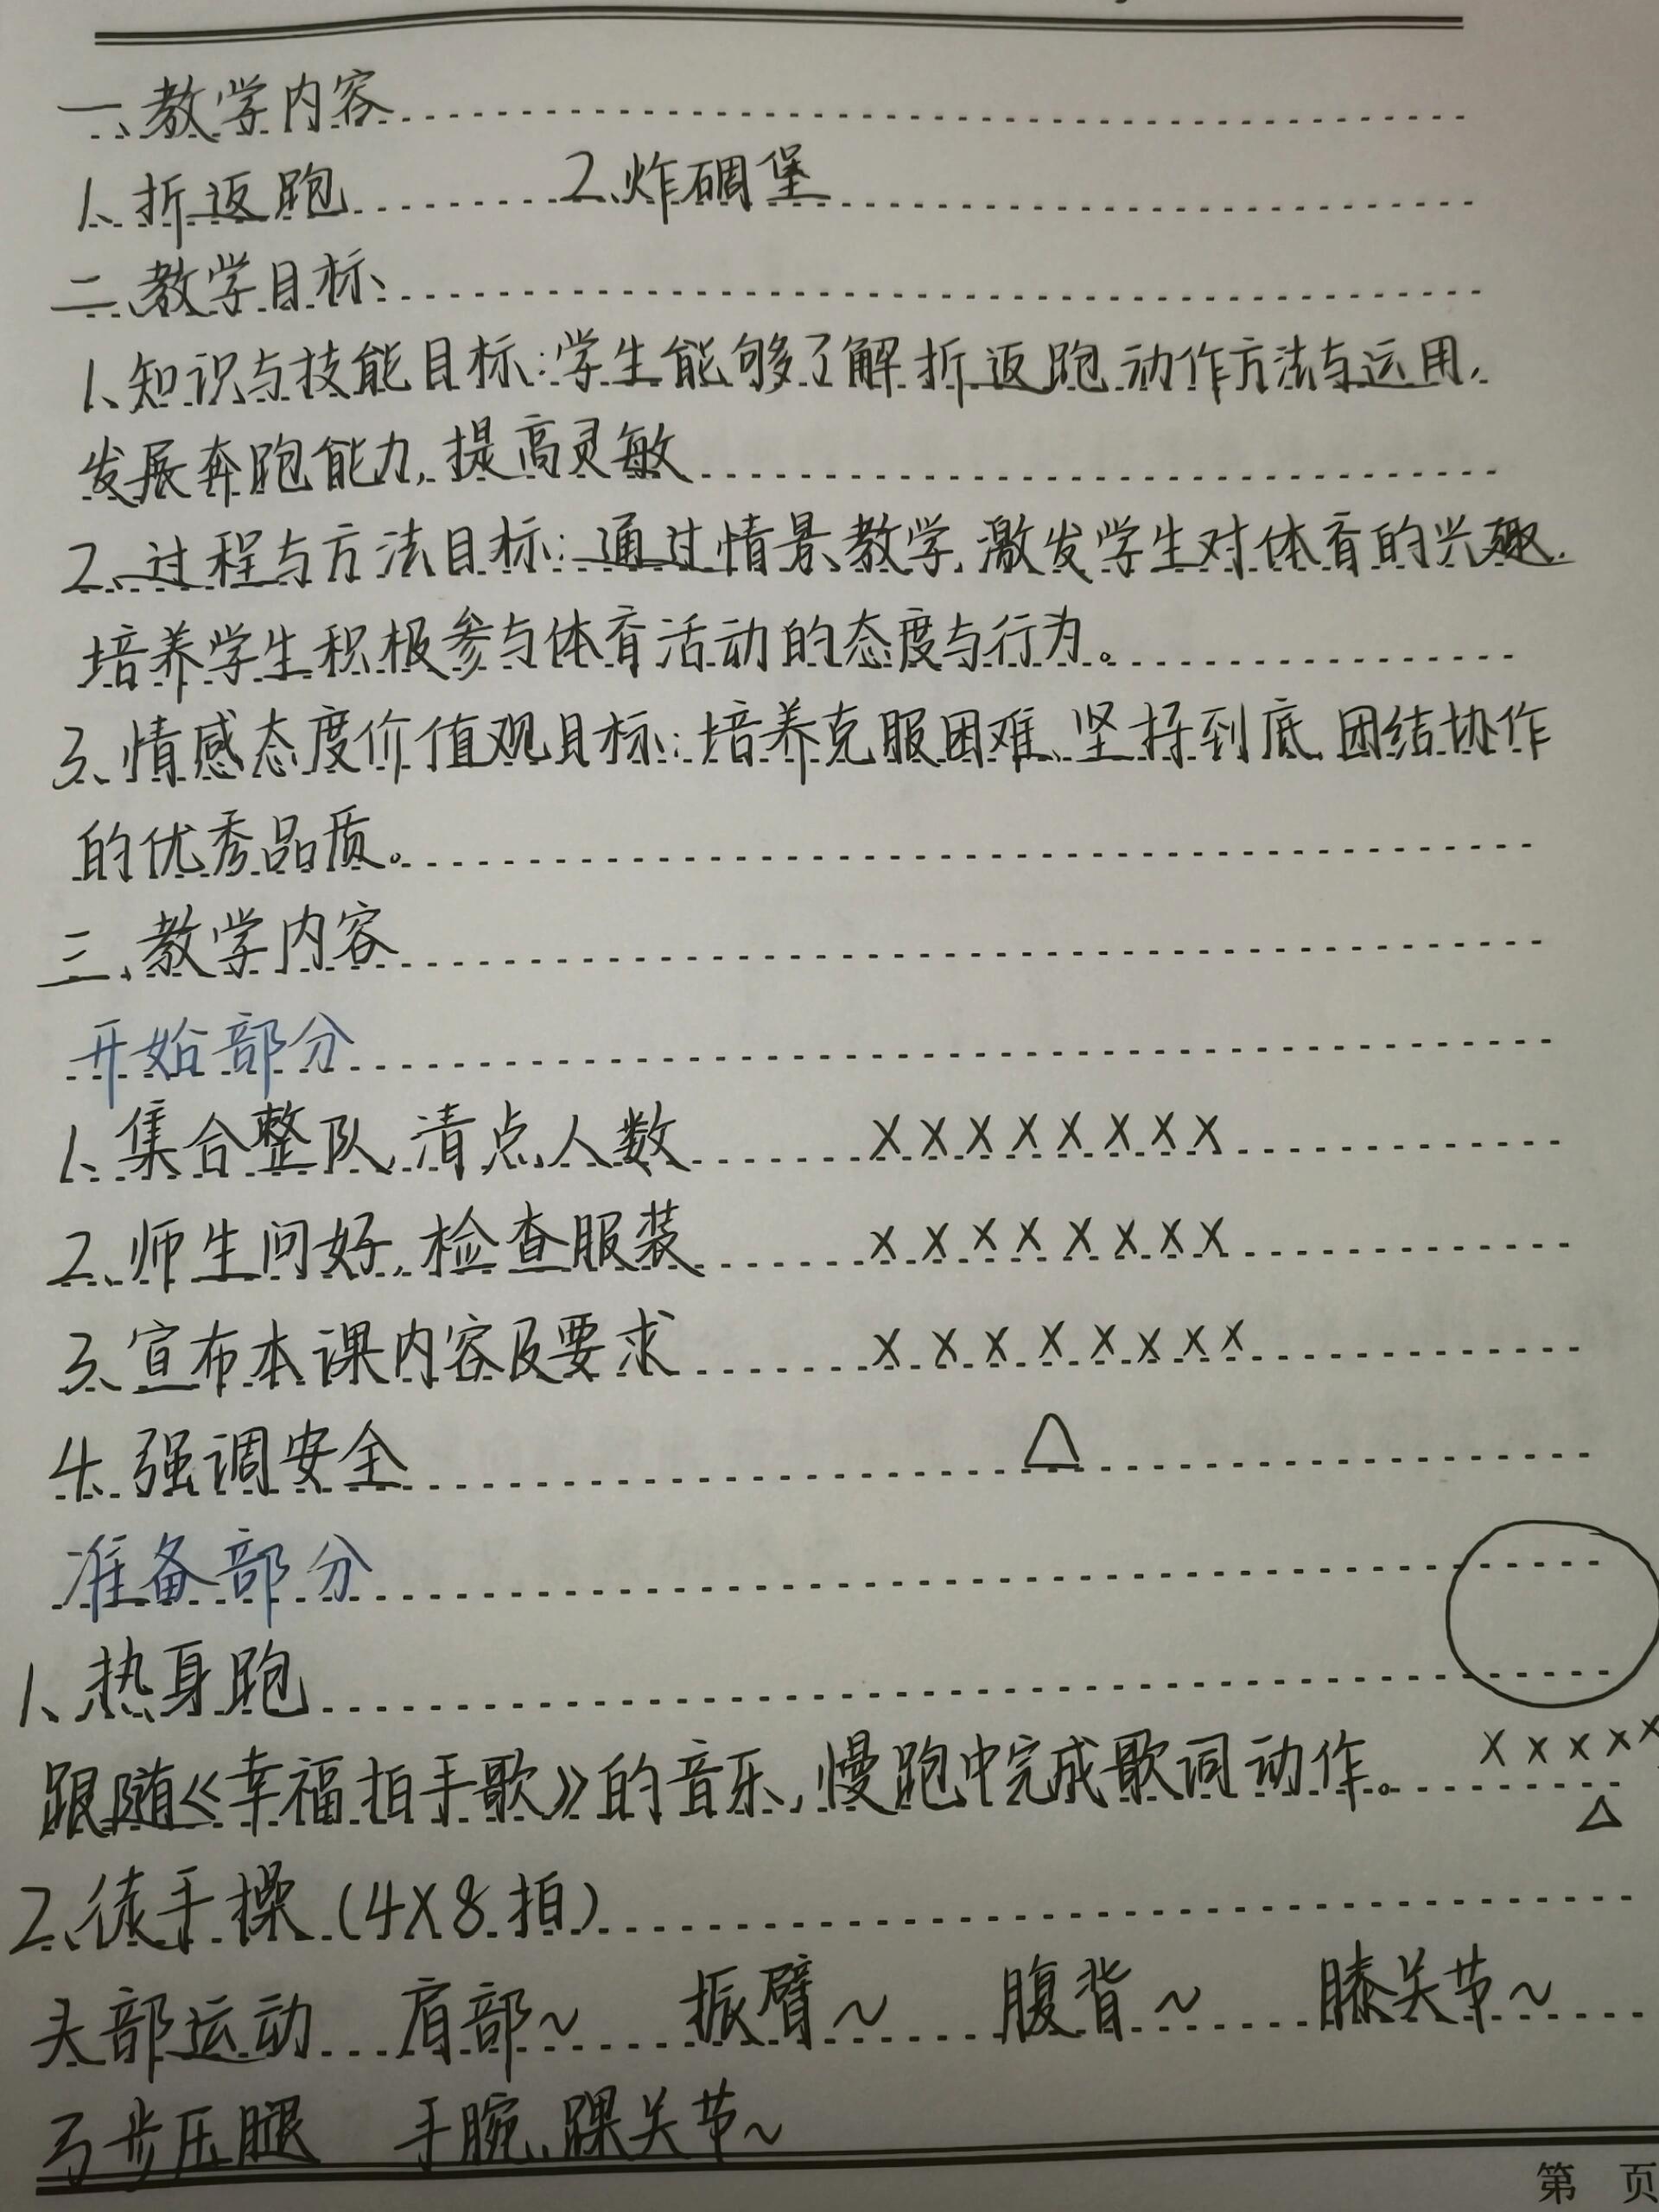 一、教学内容
1、折返跑 2、炸碉堡
二、教学目标、
1、知识与技能目标:学生能够了解折返跑动作方法与运用,
发展奔跑能力,提高灵敏
2、过程与方法目标:通过情景教学,激发学生对体育的兴趣.
培养学生积极参与体育活动的态度与行为。
3、情感态度价值观目标:培养克服困难、坚持到底、团结协作
的优秀品质。
三、教学内容
开始部分
1、集合整队,清点人数 X X X X X X X X
2、师生问好,检查服装 X X X X X X X X
3、宣布本课内容及要求 X X X X X X X X
4、强调安全 △
准备部分
1、热身跑
跟随《幸福拍手歌》的音乐,慢跑中完成歌词动作。 X X X X X
△
2、徒手操(4X8拍)
头部运动 肩部~ 振臂~ 腹背~ 膝关节~
弓步压腿 手腕、踝关节~
第 页